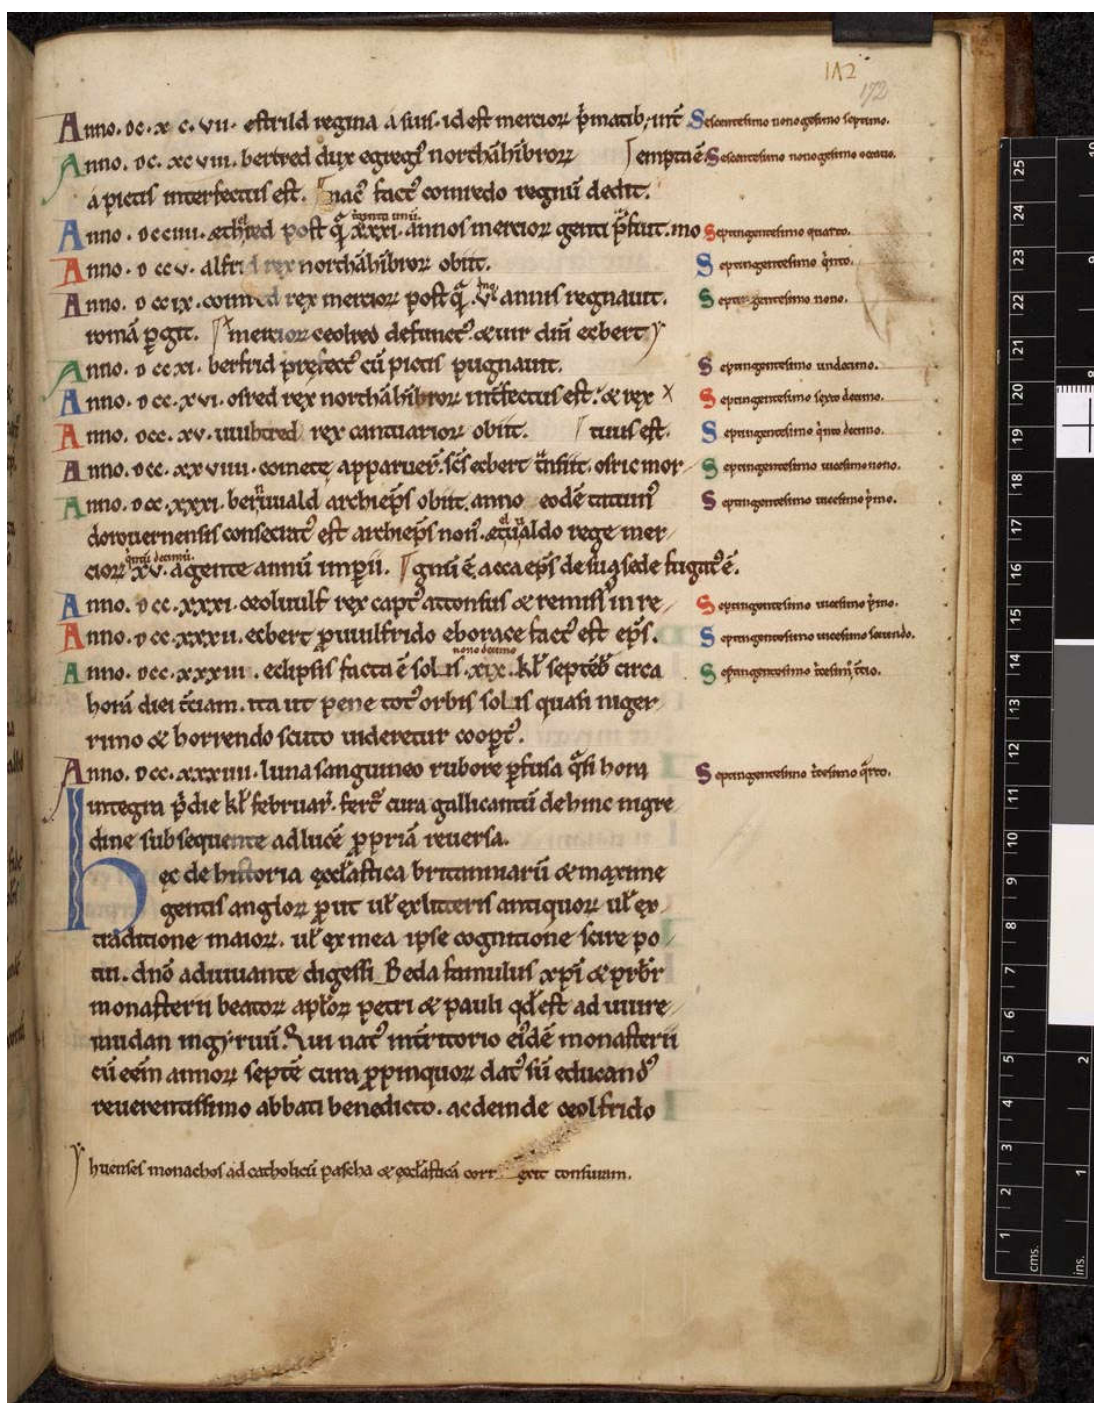 1A2
172
Anno. dc. x c. vii. estrild regina a suis. id est mercioꝝ p̃matib; int̃ Sescentesimo nonogesimo septimo.
Anno. dc. xcviii. bertred dux egregiꝰ northãhĩbroꝝ ⌈empta ẽ. Sescentesimo nonogesimo octauo.
a pictis interfectus est. ⌈nacꝰ factꝰ coinredo regnũ dedit.
Anno. dcciiii. æthelred post q̃ xxxi. triginta unũ. annos mercioꝝ genti p̃fuit. mo Septingentesimo quarto.
Anno. dccv. alfrid rex northãhĩbroꝝ obiit. Septingentesimo q̃nto.
Anno. dccix. coinred rex mercioꝝ post q̃. v. annis regnauit. Septingentesimo nono.
romã ꝑgit. ⌈mercioꝝ ceolred defunctꝰ. & uir dñi ecbert
Anno. dccxi. berfrid prefectꝰ cũ pictis pugnauit. Septingentesimo undecimo.
Anno. dcc. xvi. osred rex northãhĩbroꝝ int̃fectus est. & rex Septingentesimo sexto decimo.
Anno. dcc. xv. uuihtred rex cantuarioꝝ obiit. ⌈tuus est. Septingentesimo q̃nto decimo.
Anno. dcc. xxviiii. comete apparuer̃. scs̃ ecbert t̃nsiit. osric mor- Septingentesimo uicesimo nono.
Anno. dcc. xxxi. beriuuald archiep̃s obiit. anno eodẽ tatuinꝰ Septingentesimo tricesimo p̃mo.
dorouernensis consecratꝰ est archiep̃s nonꝰ. ætiualdo rege mer-
cioꝝ xv. quintũ decimũ. agente annũ imꝑii. ⌈gnũ ẽ, acca ep̃s de sua sede fugatꝰ ẽ.
Anno. dcc. xxxi. ceoluulf rex captꝰ attonsus & remissꝰ in re- Septingentesimo uicesimo p̃mo.
Anno. dcc. xxxii. ecbert ꝓ uuilfrido eborace factꝰ est ep̃s. Septingentesimo uicesimo secundo.
Anno. dcc. xxxiii. eclipsis facta ẽ solis. xix. nono decimo kl̃ septẽb̃ circa Septingentesimo tr̃cesimo t̃cio.
horã diei t̃ciam. ita ut pene totꝰ orbis solis quasi niger-
rimo & horrendo scuto uideretur cooptꝰ.
Anno. dcc. xxxiiii. luna sanguineo rubore ꝑfusa q̃si hora Septingentesimo tr̃cesimo q̃rto.
integra p̃die kl̃ februar̃. fer̃ cirta gallicantũ dehinc nigre
dine subsequente ad lucẽ ꝓpriã reuersa.
Hec de historia eccl̃astica britanniarũ & maxime
gentis angloꝝ ꝓut ul̃ ex litteris antiquoꝝ ul̃ ex
traditione maioꝝ. ul̃ ex mea ipse cognitione scire po-
tui. dño adiuuante digessi Beda famulus xp̃i & pr̃br
monasterii beatoꝝ apl̃oꝝ petri & pauli qd̃ est ad uuire-
mudan ingyruũ. Qui natꝰ in t̃ritorio eiꝰdẽ monasterii
cũ eẽm annoꝝ septẽ cura ꝓpinquoꝝ datꝰ sũ educandꝰ
reuerentissimo abbati benedicto. ac deinde ceolfrido
huenses monachos ad catholicũ pascha & eccl̃asticã corr gere tonsuram.